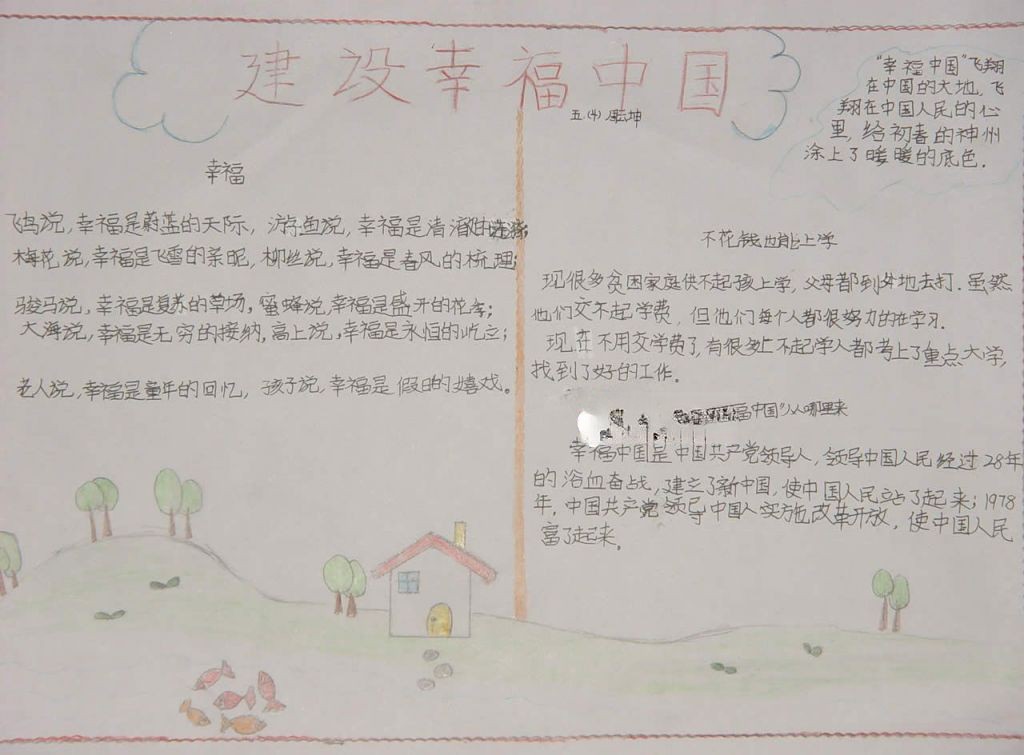 建设幸福中国
五(4)
坤
"幸福中国"飞翔
在中国的大地,飞
翔在中国人民的心
里,给初春的神州
涂上了暖暖的底色.
幸福
飞鸟说,幸福是蔚蓝的天际,游鱼说,幸福是清澈的
梅花说,幸福是飞雪的亲昵,柳丝说,幸福是春风的梳理;
骏马说,幸福是复苏的草场,蜜蜂说,幸福是盛开的花季;
大海说,幸福是无穷的接纳,高上说,幸福是永恒的屹立;
老人说,幸福是童年的回忆,孩子说,幸福是假日的嬉戏。
不花钱也能上学
现很多贫困家庭供不起孩上学,父母都到外地去打.虽然
他们交不起学费,但他们每个人都很努力的在学习.
现在不用交学费了,有很多上不起学人都考上了重点大学,
找到了好的工作。
福中国"从哪里来
幸福中国是中国共产党领导人,领导中国人民经过28年
的浴血奋战,建立了新中国,使中国人民站了起来;1978
年,中国共产党领导中国人实施改革开放,使中国人民
富了起来。